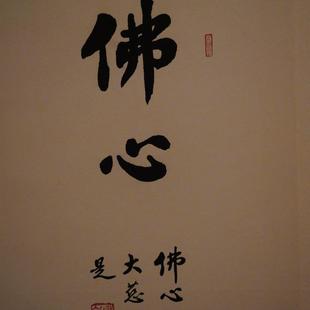 佛心
佛心
大慈
是